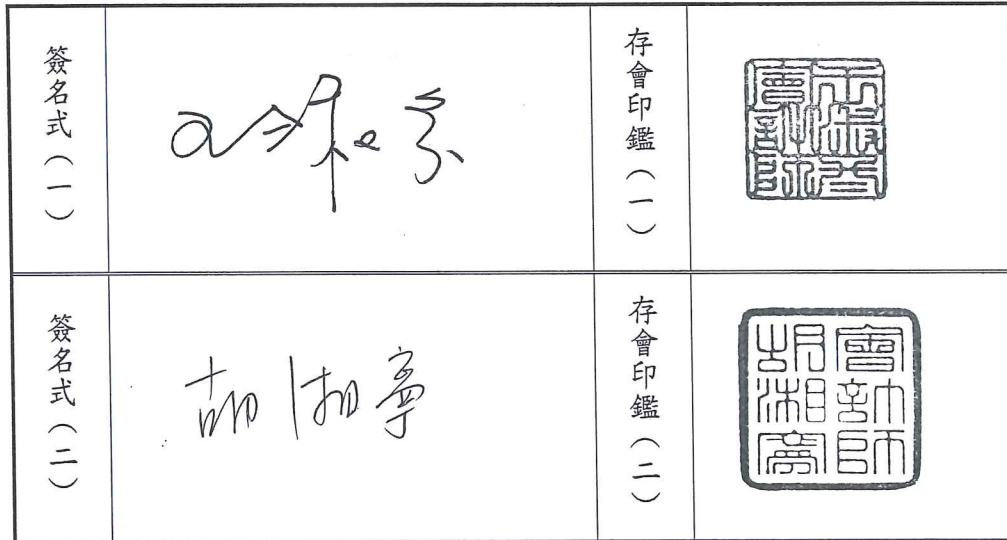 簽名式（一）
存會印鑑（一）
會計師
簽名式（二）
胡湘寧
存會印鑑（二）
會計師
胡湘寧